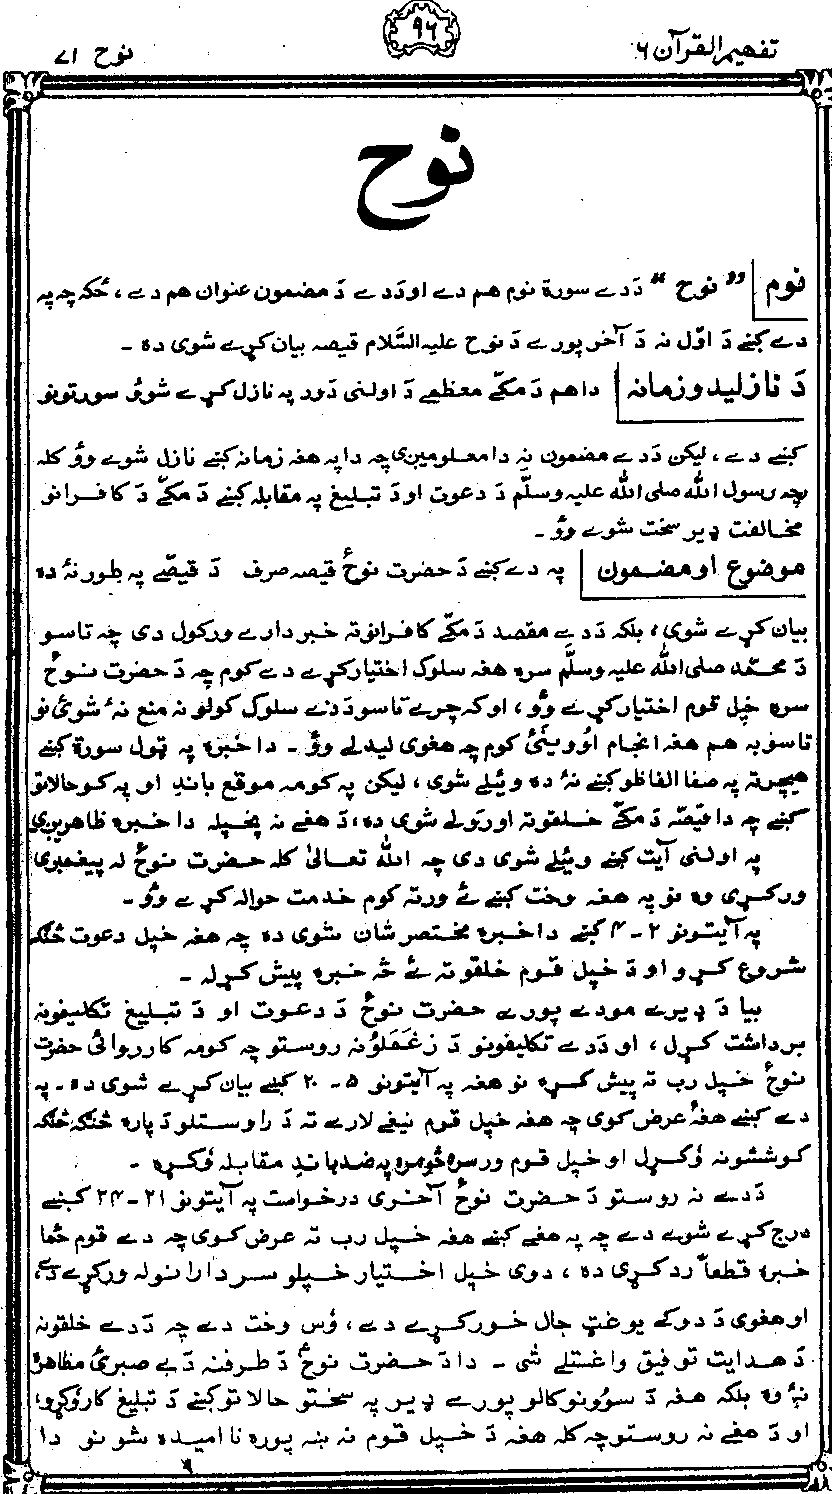 تفهیم القرآن ۶
۹۶
نوح ۷۱
نوح
نوم " نوح " دَدے سورة نوم هم دے اودَدے دَ مضمون عنوان هم دے ، ځکه چه په
دے کښے دَ اوّل نه دَ آخر پورے دَ نوح علیه السّلام قیصه بیان کړے شوی ده ـ
دَ نازلیدو زمانه داهم دَ مکّے معظمے دَ اولنی دَور په نازل کړے شوؤ سورتونو
کښے دے ، لیکن دَدے مضمون نه دا معلومیږی چه دا په هغه زمانه کښے نازل شوے وؤ کله
چه رسول الله صلی الله علیه وسلّم دَ دعوت او دَ تبلیغ په مقابله کښے دَ مکّے دَ کافرانو
مخالفت ډیر سخت شوے وؤ ـ
موضوع او مضمون په دے کښے دَ حضرت نوحؑ قیصه صرف دَ قیصّے په طور نهٔ ده
بیان کړے شوی ، بلکه دَدے مقصد دَ مکّے کافرانو ته خبردارے ورکول دی چه تاسو
دَ محمّد صلی الله علیه وسلّم سره هغه سلوک اختیار کړے دے کوم چه دَ حضرت نوحؑ
سره خپل قوم اختیار کړے وؤ ، او که چرے تاسو دَدے سلوک کولو نه منع نهٔ شوئ نو
تاسو به هم هغه انجام اووینئ کوم چه هغوی لیدلے وؤ ـ دا خبره په ټول سورة کښے
هیچرته په صفا الفاظو کښے نهٔ ده وئیلے شوی ، لیکن په کومه موقع باندِ او په کو حالاتو
کښے چه دا قیصّه دَ مکّے خلقو ته اورولے شوی ده ، دَ هغے نه پخپله دا خبره ظاهریږی
په اولنی آیت کښے وئیلے شوی دی چه الله تعالیٰ کله حضرت نوحؑ له پیغمبری
ورکړی وه نو په هغه وخت کښے ئے ورته کوم خدمت حواله کړے وؤ ـ
په آیتونو ۲ ـ ۴ کښے دا خبره مختصر شان شوی ده چه هغه خپل دعوت څنګه
شروع کړو او دَ خپل قوم خلقو ته ئے څه خبره پیش کړله ـ
بیا دَ ډیرے مودے پورے حضرت نوحؑ دَ دعوت او دَ تبلیغ تکلیفونه
برداشت کړل ، او دَدے تکلیفونو دَ زغملو نه روستو چه کومه کارروائی حضرت
نوحؑ خپل رب ته پیش کړه نو هغه په آیتونو ۵ ـ ۲۰ کښے بیان کړے شوی ده ـ په
دے کښے هغهٔ عرض کوی چه هغه خپل قوم نیغے لارے ته دَ راوستلو دَپاره څنګه څنګه
کوششونه وُکړل او خپل قوم ورسره څومره په ضد باندِ مقابله وُکړه ـ
دَدے نه روستو دَ حضرت نوحؑ آخری درخواست په آیتونو ۲۱ ـ ۲۴ کښے
درج کړے شوے دے چه په هغے کښے هغه خپل رب ته عرض کوی چه دے قوم څما
خبره قطعاً رد کړی ده ، دوی خپل اختیار خپلو سردارانو له ورکړے دے ،
او هغوی دَ دوکے یو غټ جال خور کړے دے ، وُس وخت دے چه دَدے خلقو نه
دَ هدایت توفیق واغستلے شی ـ دا دَ حضرت نوحؑ دَ طرفنه دَ بے صبرئ مظاهره
نهٔ وه بلکه هغه دَ سوونو کالو پورے ډیر په سختو حالاتو کښے دَ تبلیغ کار وُکړو ،
او دَ هغے نه روستو چه کله هغه دَ خپل قوم نه ښه پوره ناامیده شو نو دا